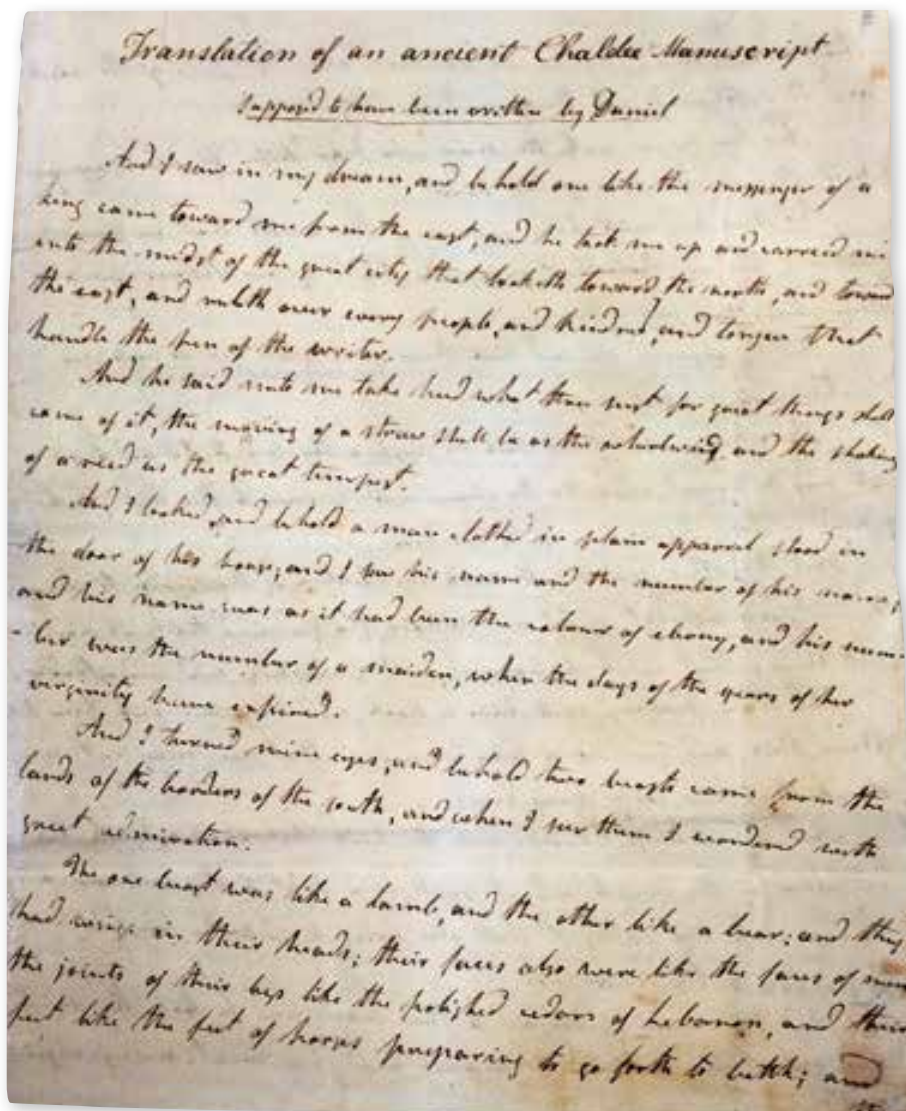 Translation of an ancient Chaldee Manuscript
Supposed to have been written by Daniel
And I saw in my dream, and behold one like the messenger of a
king came toward me from the east, and he took me up and carried me
into the midst of the great city that looketh toward the north, and toward
the east, and ruleth over every people, and kindred, and tongue that
handle the pen of the writer.
And he said unto me take heed what thou seest for great things shall
come of it, the moving of a straw shall be as the whirlwind, and the shaking
of a reed as the great tempest.
And I looked, and behold a man clothed in plain apparel stood in
the door of his house, and I saw his name and the number of his name,
and his name was as it had been the colour of ebony, and his num-
-ber was the number of a maiden, when the days of the years of her
virginity have expired.
And I turned mine eyes, and behold two beasts came from the
lands of the borders of the south, and when I saw them I wondered with
great admiration.
The one beast was like a lamb, and the other like a bear; and they
had wings in their heads; their faces also were like the faces of men
the joints of their legs like the polished cedars of Lebanon, and their
feet like the feet of horses preparing to go forth to battle; and